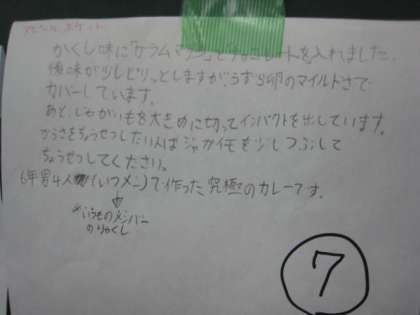 アピールポイント
かくし味に「ガラムマサラ」とチョコレートを入れました。
後味が少しピリッとしますが、うずら卵のマイルドさで
カバーしています。
あと、じゃがいもを大きめに切ってインパクトを出しています。
からさをちょうせつしたい人はジャガイモを少しつぶして
ちょうせつしてください。
6年男4人(いつメン)で作った究極のカレーです。
※いつものメンバー
のりゃくし
7